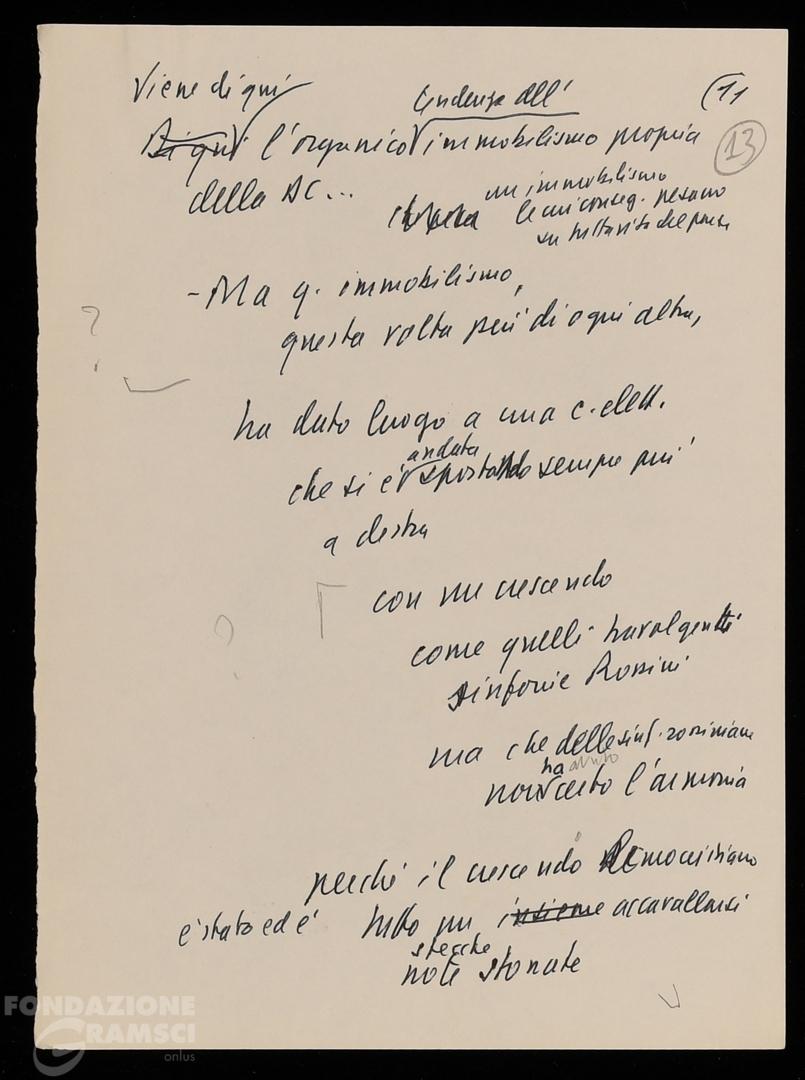 Viene di qui
tendenza all'
(11
13
Di qui l'organico immobilismo propria
della DC...
un immobilismo
le cui conseg. pesano
su tutta vita del paese
- Ma q. immobilismo,
questa volta più di ogni altra,
ha dato luogo a una c. elett.
andata
che si è spostando sempre più
a destra
con un crescendo
come quelli travolgenti
sinfonie Rossini
ma che delle sinf. rossiniane
ha avuto
non certo l'armonia
perché il crescendo democristiano
è stato ed è tutto un insieme accavallarsi
stecche
note stonate
FONDAZIONE
GRAMSCI
onlus